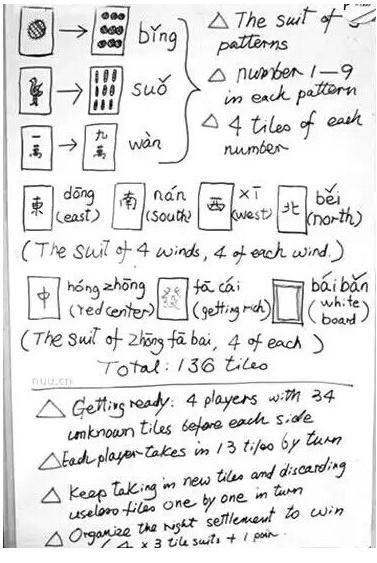 bǐng
△ The suit of 3
patterns
suǒ
△ number 1—9
in each pattern
一萬 九萬 wàn
△ 4 tiles of each
number
東 dōng (east) 南 nán (south) 西 xī (west) 北 běi (north)
(The suit of 4 winds, 4 of each wind.)
中 hóng zhōng (red center) 發 fā cái (getting rich) bái bǎn (white board)
(The suit of zhōng fā bai, 4 of each)
Total: 136 tiles
nuu.cn
△ Getting ready: 4 players with 34
unknown tiles before each side
△ Each player takes in 13 tiles by turn
△ Keep taking in new tiles and discarding
useless tiles one by one in turn
△ Organize the right settlement to win
(4 × 3 tile suits + 1 pair